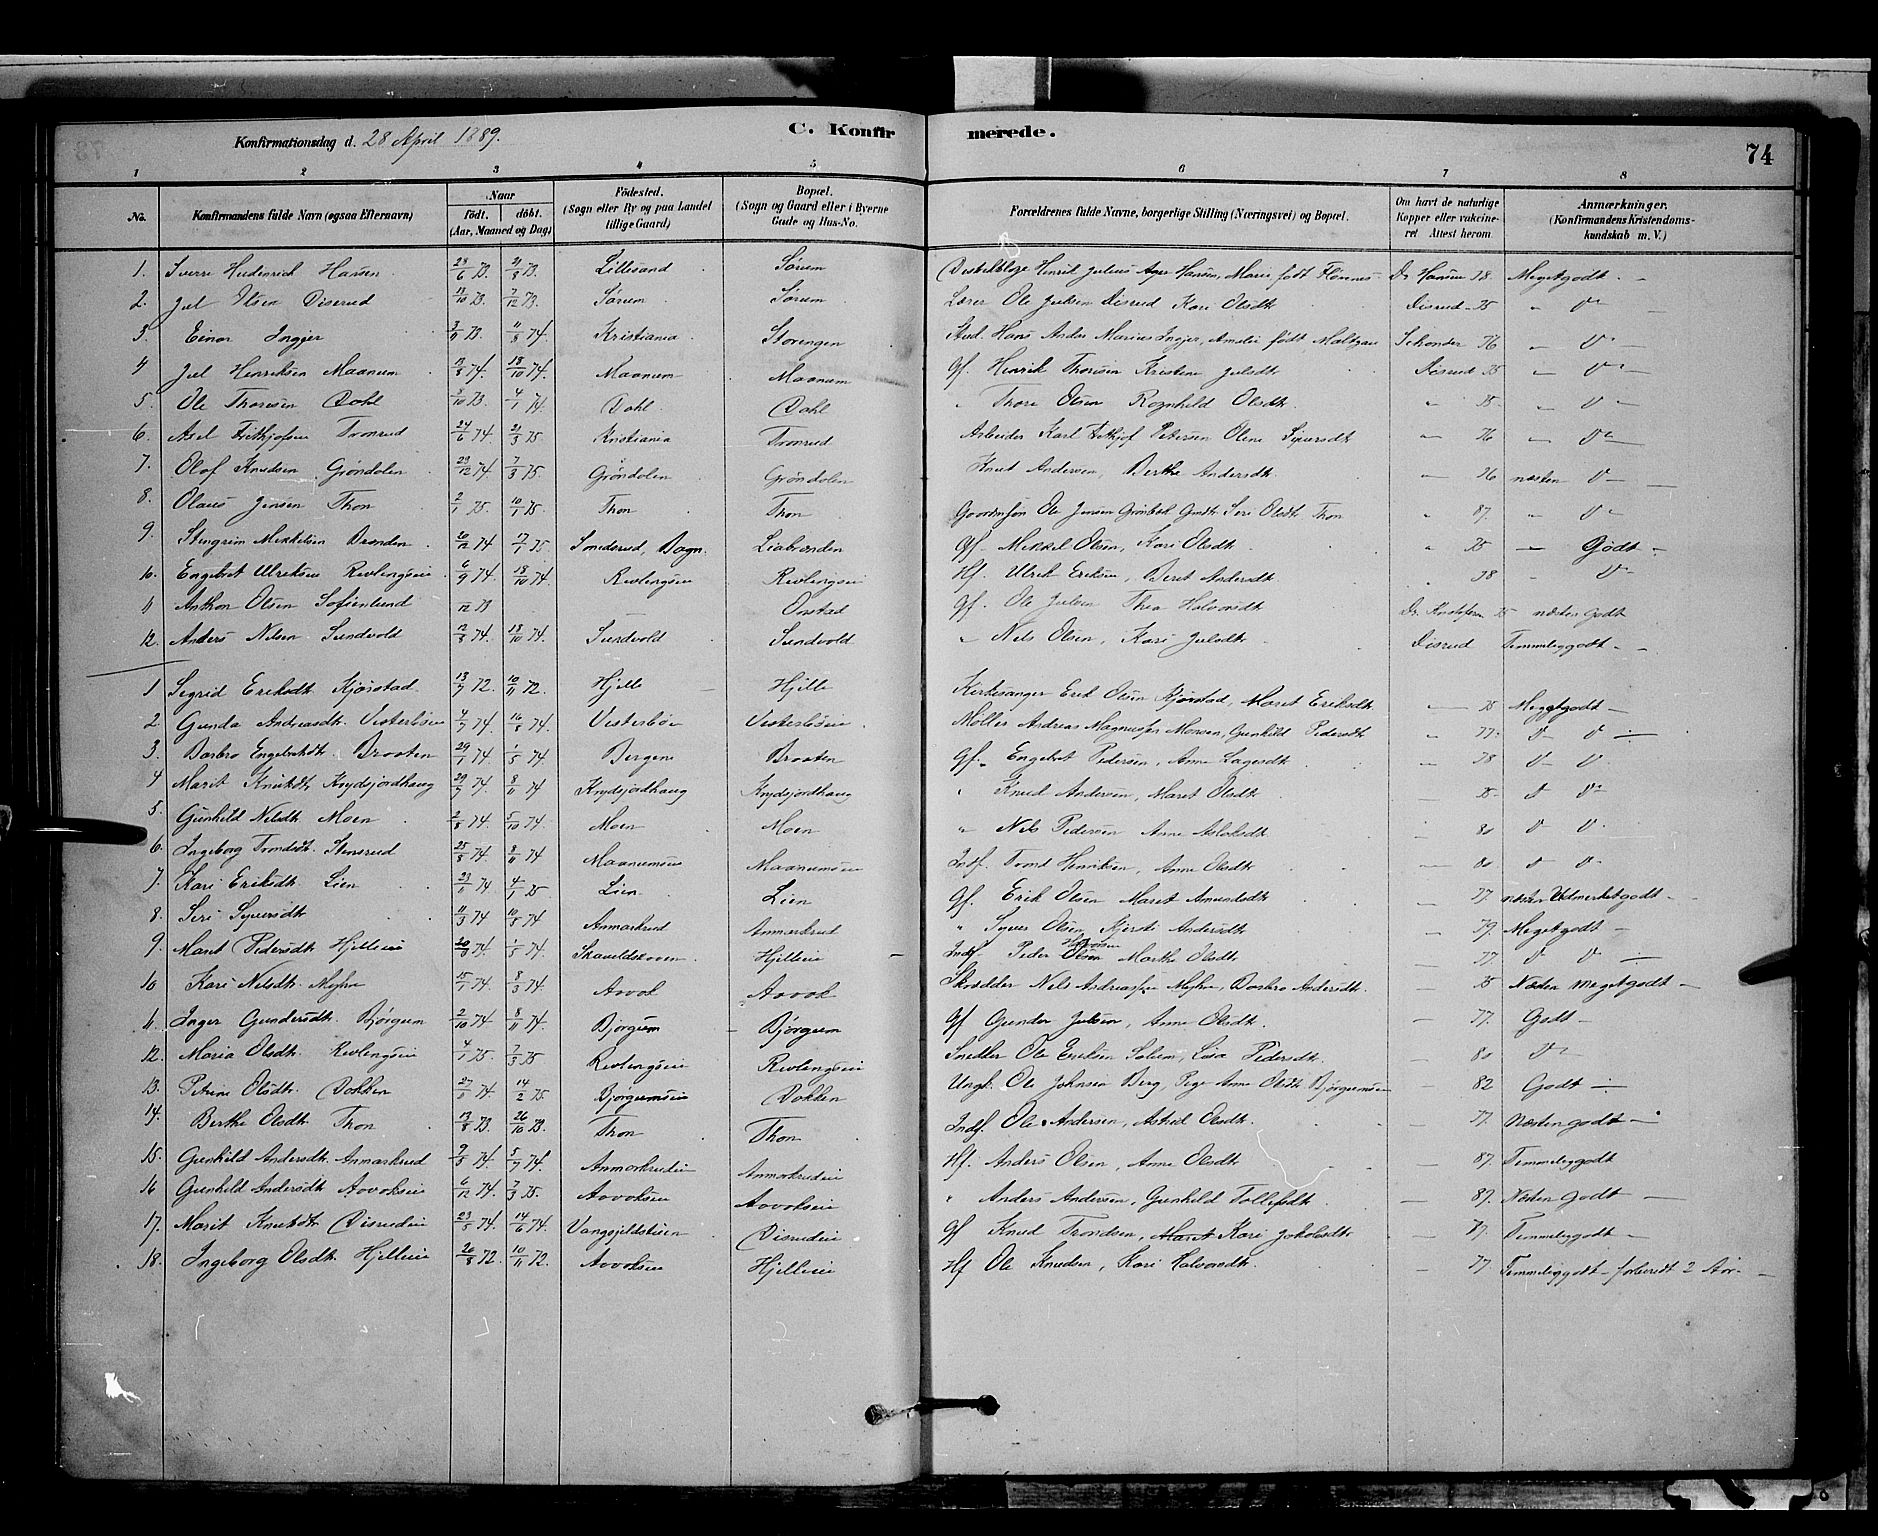 Konfirmationsdag d. 28 April 1889.
C. Konfirmerede.
74
1 2 3 4 5 6 7 8
No. Konfirmandens fulde Navn (ogsaa Efternavn) Naar født. døbt. (Aar, Maaned og Dag) Fødested. (Sogn eller By og paa Landet tillige Gaard) Bopæl. (Sogn og Gaard eller i Byerne Gade og Hus-No. Forældrenes fulde Navne, borgerlige Stilling (Næringsvei) og Bopæl. Om havt de naturlige Kopper eller vakcineret Attest herom. Anmærkninger. (Konfirmandens Kristendomskundskab m. V.)
1. Sverre Hansen 73. 73. Lillesand Sørum Henrik Julius Hansen, Marie født Dr Hansen 78 Megetgodt
2. Jul Olsen Disrud 13/10 73. 7/12 73. Sørum Sørum Lærer Ole Julsen Disrud Kari Olsdtr Disrud 75 " v
3. Einar Ingjer 3/11 73 74. Kristiania Storengen Stud. Hans Anders Marius Ingjer, Amalie født 76 " v
4 Jul Henriksen Maanum 13/8 74. 18/10 74. Maanum Maanum Gf. Henrik Thoresen Kristine Julsdtr Disrud 75 " v
5. Ole Thoresen Dahl /10 73. 4/1 74. Dahl Dahl " Thore Olsen Ragnhild Olsdtr. " 75 " v
6. Axel Frithjofsen Tronrud 24/6 74. 21/3 75. Kristiania Tronrud Arbeider Karl Frithjof Petersen Oline Syversdtr 76 " v
7. Olaf Knudsen Grøndalen 23/12 74. 7/3 75. Grøndalen Grøndalen Knut Andersen, Berthe Andersdtr. 76 næsten v
8. Olaus Jensen Thon 2/1 75. 10/1 75. Thon Thon Jensen Siri Olsdtr Thon " 87. " v
9. Stengrim Mikkelsen Brenden 20/12 74 17/1 75 Bagn. Liabrænden Gf. Mikkel Olsen, Kari Olsdtr. " 75 Godt
10. Engebret Ulriksen Revlingseie 6/9 74. 18/10 74. Revlingseie Revlingseie Hf. Ulrik Eriksen, Berit Andersdtr. " 78 " v
11 Anthon Olsen Sofienlund /12 73 — Onstad Gf. Ole Julsen Thea Halvorsdtr Dr. 75 næsten godt
12. Anders Nilsen Sundvold 12/8 74. 18/10 74. Sundvold Sundvold " Nels Olsen, Kari Julsdtr Disrud Temmeliggodt
1 Sigrid Eriksdtr Kjørstad 72. 10/11 72. Hjelle Hjelle Kirkesanger Erik Olsen Kjørstad, Marit Eriksdtr 75 Megetgodt
2 Gunda Andreasdtr. Vesterbøen 4/7 74. 16/8 74. Vesterbøen Vesterbøen Møller Andreas Magnussen Monsen, Gunhild Pedersdtr " 77. v v
3. Barbro Engebretsdtr Braaten 29/1 74. 1/5 74 Bergene Braaten Gf. Engebret Pedersen, Anne Aagesdtr " 78 v v
4 Marit Knutsdtr Krydsjordhaug 29/9 74. 8/11 74 Krydsjordhaug Krydsjordhaug " Knud Andersen, Marit Olsdtr. 75. v v
5. Gunhild Nilsdtr Moen 2/8 74. 5/10 74. Moen Moen " Nils Pedersen Anne Aslaksdtr 80 v v
6. Ingeborg Trondsdtr. Stensrud 25/8 74. 8/11 74 Maanumseie Maanumseie Indf. Trond Henriksen, Anne Olsdtr 80 v v
7. Kari Eriksdtr. Lien 23/ 74 4/1 75 Lien Lien Gf. Erik Olsen Marit Amundsdtr 77. næsten Udmerketgodt
8. Siri Syversdtr 11/3 74 10/5 74 Anmarkrud Anmarkrud " Syver Olsen Kjersti Andersdtr 79. Megetgodt
9. Marit Pedersdtr Hjelleeie 74. 1/5 74. Skaveldskoven Hjelleeie Indf. Peder Olsen Marthe Olsdtr 77. v v
10 Kari Nilsdtr. Myhre 15/1 74. 8/3 74. Aavok Aavok Skrædder Nils Andreassen Myhre, Barbro Andersdtr. 75 Næsten megetgodt
11. Inger Gundersdtr. Bjørgum 2/10 74 8/11 74. Bjørgum Bjørgum Gf Gunder Julsen, Anne Olsdtr. 77. Godt
12. Maria Olsdtr. Revlingseie 4/1 75. 7/3 75. Revlingseie Revlingseie Snedker Ole Eriksen Solem, Lisa Pedersdtr. 80 v
13. Petrine Olsdtr. Dokken 27/11 74. 14/2 75 Bjørgumseie Dokken Ungk. Ole Johnsen Berg, Pige Anne Olsdtr Bjørgumseie 82 Godt
14. Berthe Olsdtr. Thon 13/8 73. 26/10 73. Thon Thon Indf. Ole Andersen, Astrid Olsdtr. 77. Næstengodt
15. Gunhild Andersdtr. Anmarkrud 9/5 74. 5/7 74. Anmarkrudeie Anmarkrudeie Hf. Anders Olsen, Anne Olsdtr 87. Temmeliggodt
16 Gunhild Andersdtr Aavokseie 6/12 74. 7/3 75. Aavokseie Aavokseie " Anders Andersen, Gunhild Tollefsdtr. 89. Næsten godt
17. Marit Knutsdtr Disrudeie 23/5 74. 14/6 74. Disrudeie Gf Knud Trondsen, Marit Kari Jakobsdtr 87. Temmeliggodt
18. Ingeborg Olsdtr. Hjelleeie 26/8 72. 10/11 72. Aavokseie Hjelleeie Hf Ole Knudsen, Kari Halvorsdtr. 77 Temmeliggodt – forberedt 2 Aar